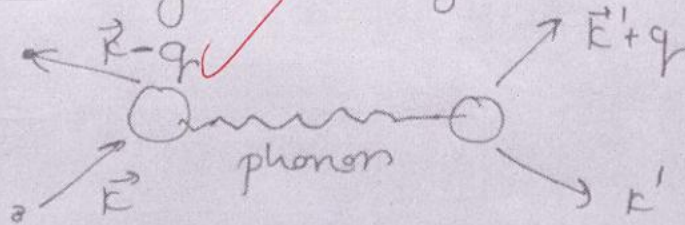 k⃗-q
k⃗'+q
phonon
k⃗
k'